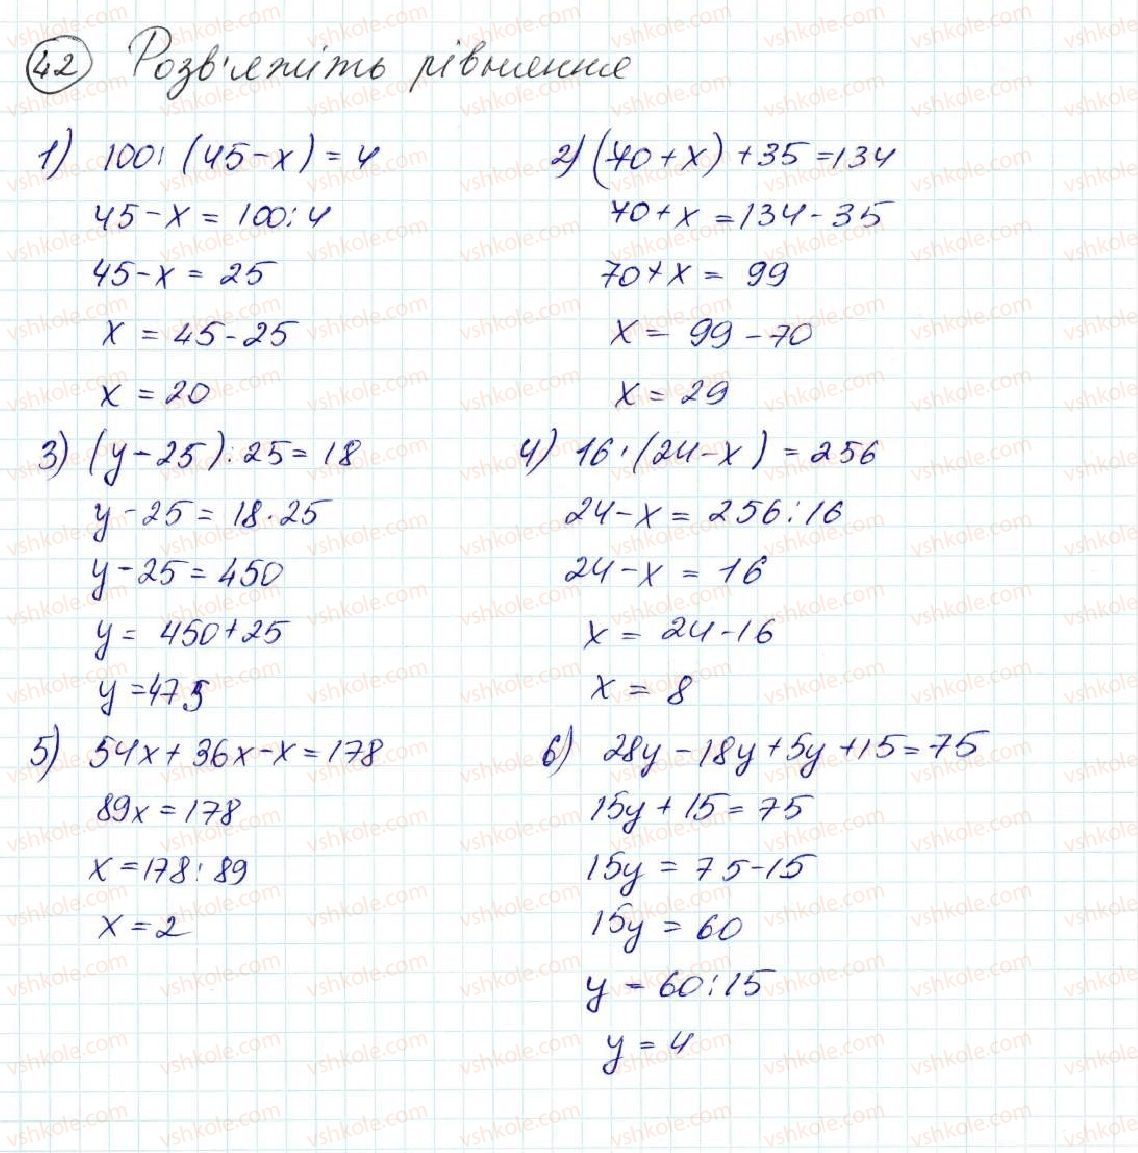 42 Розв'яжіть рівняння
1) 100 : (45 - x) = 4
45 - x = 100 : 4
45 - x = 25
x = 45 - 25
x = 20
2) (70 + x) + 35 = 134
70 + x = 134 - 35
70 + x = 99
x = 99 - 70
x = 29
3) (y - 25) : 25 = 18
y - 25 = 18 · 25
y - 25 = 450
y = 450 + 25
y = 475
4) 16 · (24 - x) = 256
24 - x = 256 : 16
24 - x = 16
x = 24 - 16
x = 8
5) 54x + 36x - x = 178
89x = 178
x = 178 : 89
x = 2
6) 28y - 18y + 5y + 15 = 75
15y + 15 = 75
15y = 75 - 15
15y = 60
y = 60 : 15
y = 4
vshkole.com